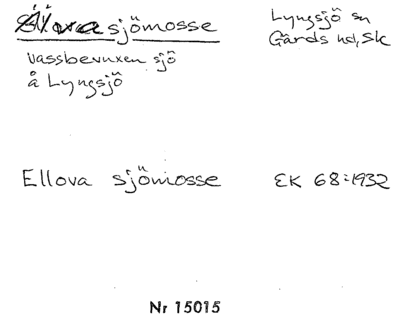 sjömosse
Lyngsjö sn
Gärds hd, Sk
Vassbevuxen sjö
å Lyngsjö
Ellova sjömosse
EK 68:1932
Nr 15015